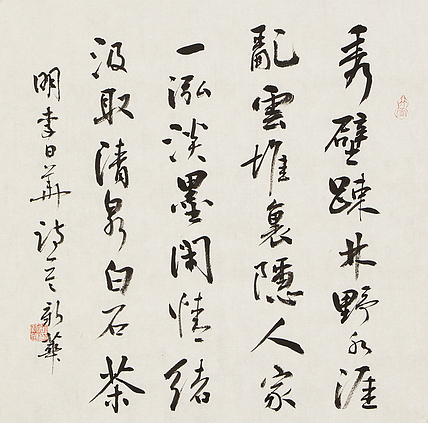 秀壁疎林野水涯
亂雲堆裏隱人家
一泓淡墨閑情緒
汲取清泉白石茶
明李日華詩一首 新華